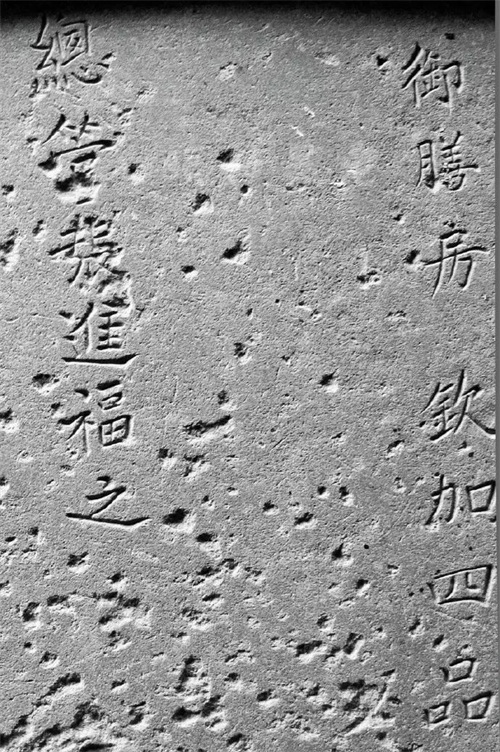 御膳房 欽加四品
總管進福之